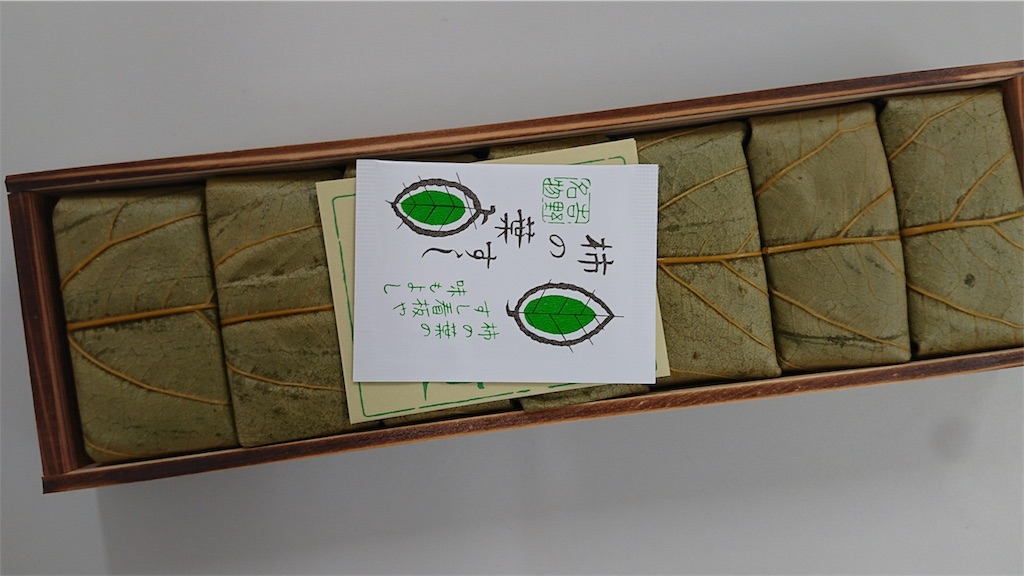 吉野
名物
柿の
葉
すし
柿の葉の
すし看板や
味もよし